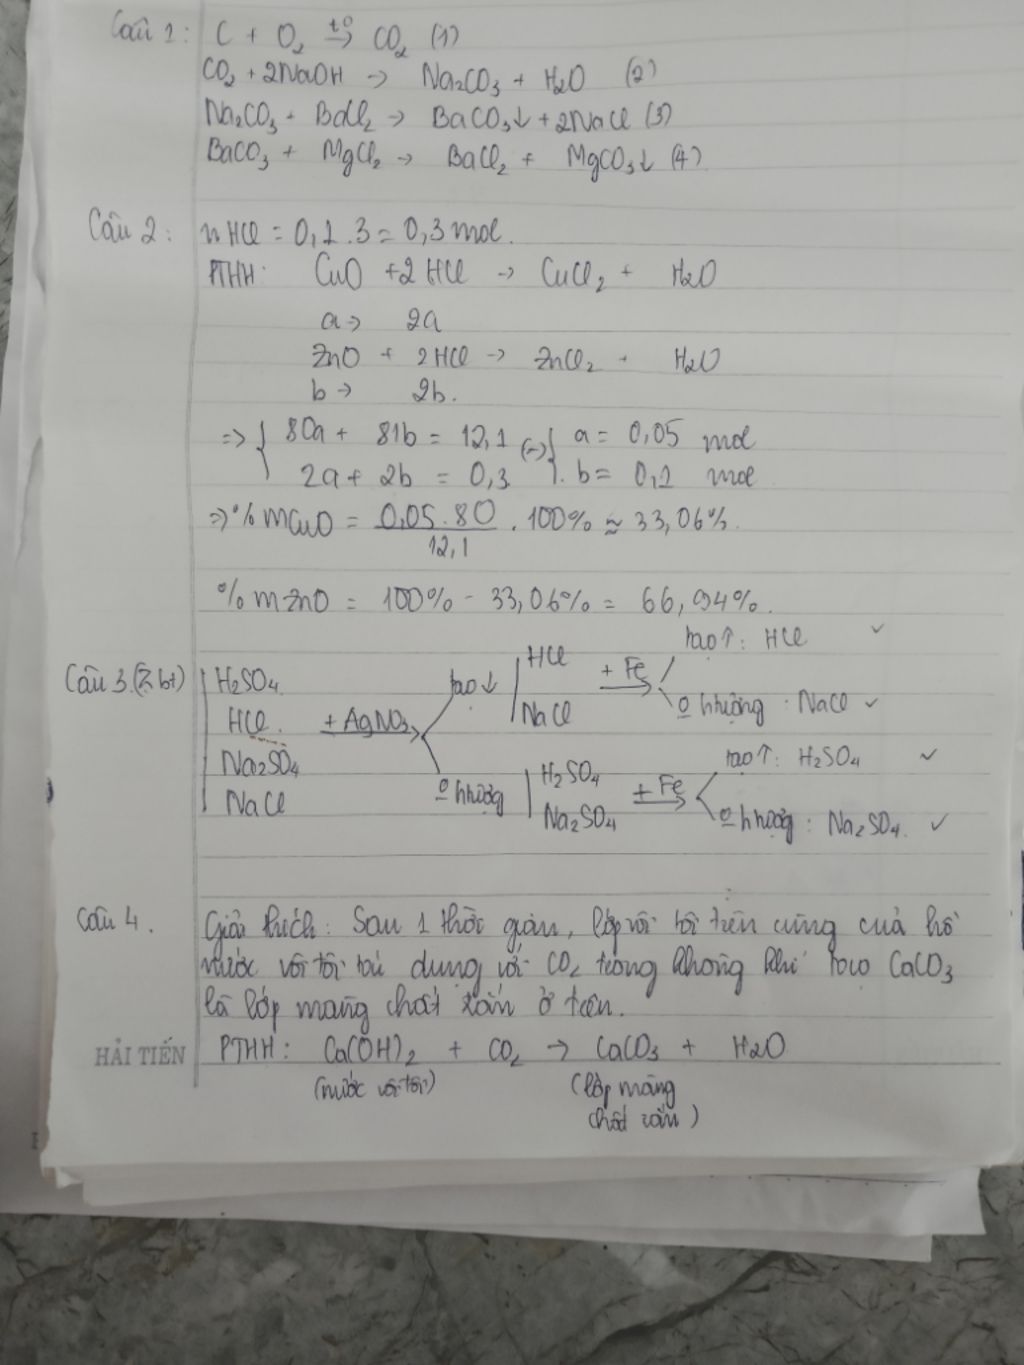 Câu 1: C + O₂ t°→ CO₂ (1)
CO₂ + 2NaOH → Na₂CO₃ + H₂O (2)
Na₂CO₃ + BaCl₂ → BaCO₃↓ + 2NaCl (3)
BaCO₃ + MgCl₂ → BaCl₂ + MgCO₃↓ (4)
Câu 2: nHCl = 0,1.3 = 0,3 mol.
PTHH: CuO + 2HCl → CuCl₂ + H₂O
a → 2a
ZnO + 2HCl → ZnCl₂ + H₂O
b → 2b.
=> { 80a + 81b = 12,1 (=) { a = 0,05 mol
2a + 2b = 0,3 b = 0,1 mol
=> % mCuO = 0,05.80 / 12,1 . 100% ≈ 33,06%.
% mZnO = 100% - 33,06% = 66,94%.
Câu 3. H₂SO₄ HCl NaCl + Fe tạo ↑: HCl ✓
HCl + AgNO₃ tạo ↓ | HCl NaCl + Fe o hiện tượng : NaCl ✓
Na₂SO₄ H₂SO₄ + Fe tạo ↑: H₂SO₄ ✓
NaCl o hiện tượng | Na₂SO₄ o hiện tượng : Na₂SO₄. ✓
Câu 4. Giải thích: Sau 1 thời gian, lớp vôi tôi trên cùng của hố
nước vôi tôi tác dụng với CO₂ trong không khí tạo CaCO₃
là lớp màng chất rắn ở trên.
HẢI TIẾN PTHH: Ca(OH)₂ + CO₂ → CaCO₃ + H₂O
(nước vôi tôi) (lớp màng
chất rắn)